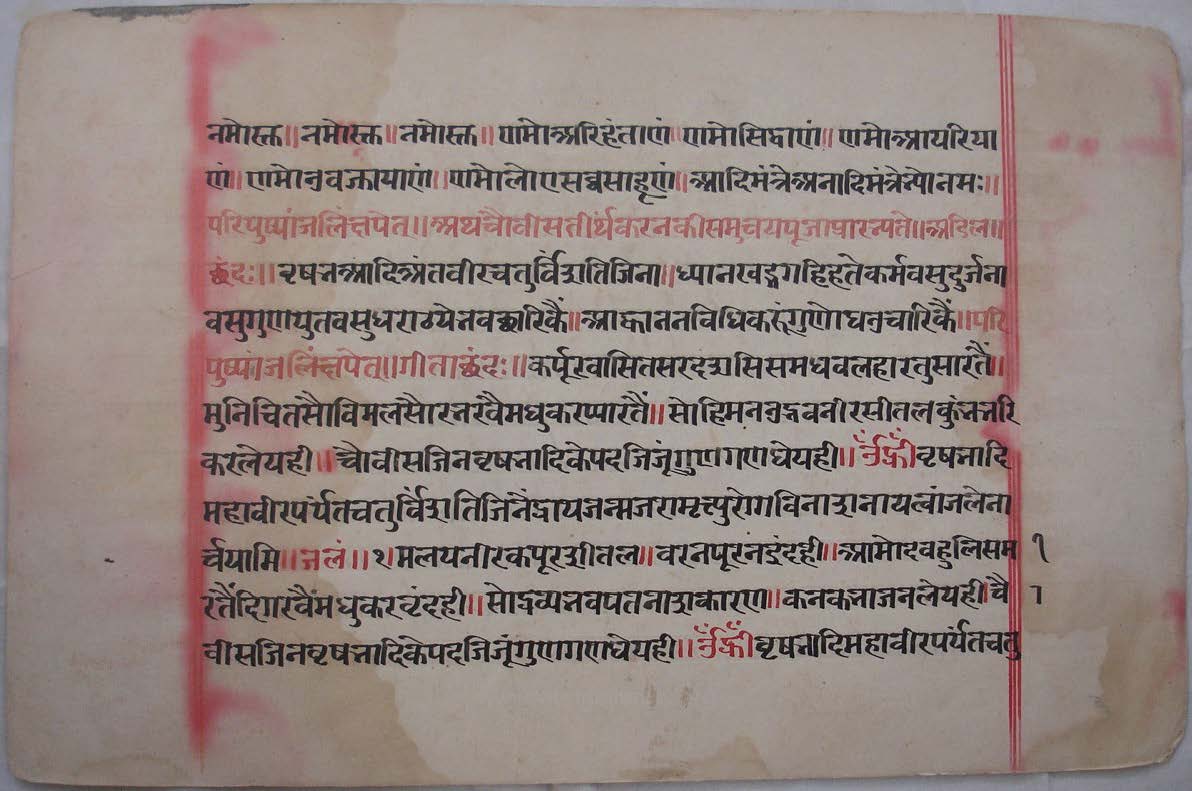 नमोस्त॥ नमोस्त॥ नमोस्त॥ णमोअरिहंताणं॥ णमोसिद्धाणं॥ णमोआयरिया
णं॥ णमोउवज्झायाणं॥ णमोलोएसव्वसाहूणं॥ आदिमंत्रेअनादिमंत्रेभ्योनमः॥
परिपुष्पांजलिंक्षपेत्॥ अथचौवीसतीर्थंकरनकीसमुचयपूजाप्रारभ्यते॥ अडिल॥
छंदः॥ वृषभआदिअंतवीरचतुर्विंशतिजिना॥ ध्यानखड्गगहिहतेकर्मवसुदुर्जना
वसुगुणयुतवसुधरा नवछारिकैं॥ आह्वाननविधिकरूंगुणोघउचारिकैं॥ परि
पुष्पांजलिंक्षपेत्॥ गीताछंदः॥ कर्पूरवासितसरदशसिसमधवलहारतुसारतैं॥
मुनिचितसौविमलसौरभरवैमधुकरप्यारतैं॥ सोहिमनउद्भवनीरसीतलकुंभभरि
करलेयही॥ चौवीसजिनवृषभादिकेपदजिजूंगुणगणधेयही॥ ॐह्रीं वृषभादि
महावीरपर्यंतचतुर्विंशतिजिनेंद्रायजन्मजरामृत्युरोगविनाशनाय जलेना
र्च्चयामि॥ जलं॥ १ मलयनीरकपूरशीतल॥ वरनपूरनइंदही॥ आमोदवहुलिसम १
रतैंदिगरवैंमधुकरवृंदही॥ सोद्रव्यभवपतनाशकारण॥ कनकभाजनलेयही॥ चै १
वीसजिनवृषभादिकेपदजिजूंगुणगणधेयही॥ ॐह्रीं वृषभादिमहावीरपर्यंतचतु